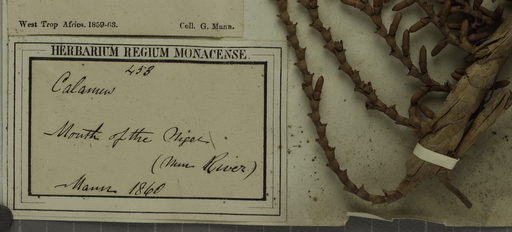 West Trop Africa. 1859-63. Coll. G. Mann.
HERBARIUM REGIUM MONACENSE.
453
Calamus
Mouth of the Niger
(Nun River)
Mann 1860